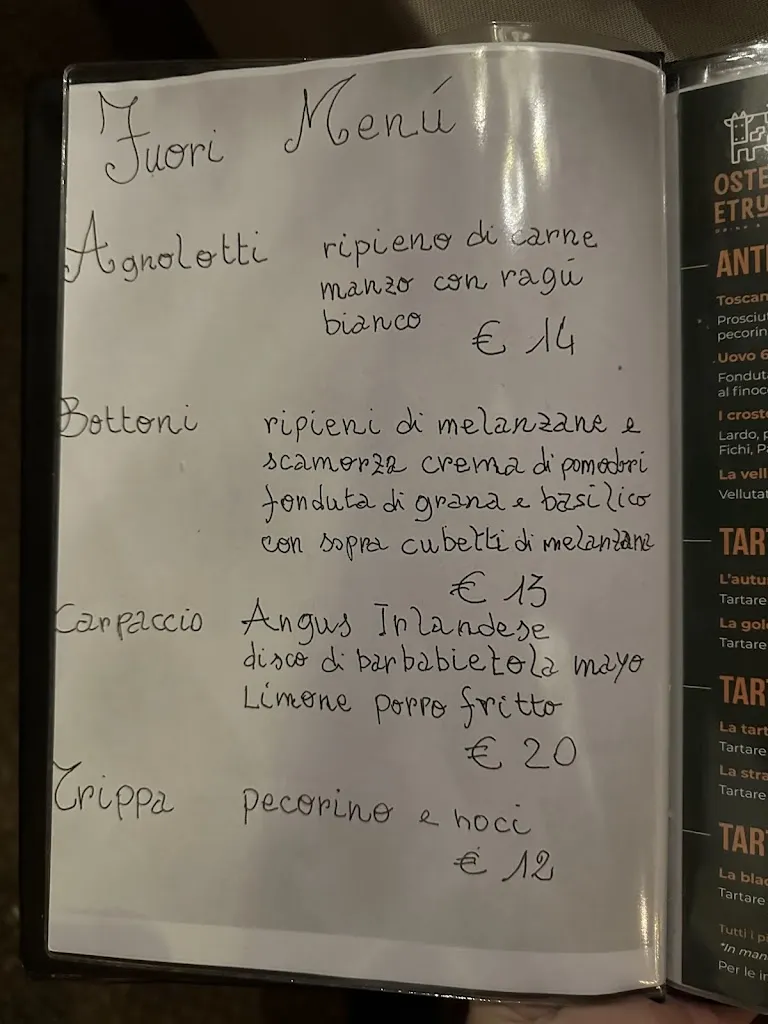 Fuori Menú
Agnolotti ripieno di carne
manzo con ragú
bianco
€ 14
Bottoni ripieni di melanzane e
scamorza crema di pomodori
fonduta di grana e basilico
con sopra cubetti di melanzana
€ 13
Carpaccio Angus Irlandese
disco di barbabietola mayo
Limone porro fritto
€ 20
Trippa pecorino e noci
€ 12
OSTE
ETRU
ANTI
Toscan
Prosciut
pecorin
Uovo 6
Fonduta
al finoc
I crosto
Lardo, p
Fichi, Pa
La vell
Vellutat
TAR
L'autu
Tartare
La gol
Tartare
TAR
La tart
Tartare
La stra
Tartare
TAR
La blac
Tartare
Tutti i pi
*In man
Per le in